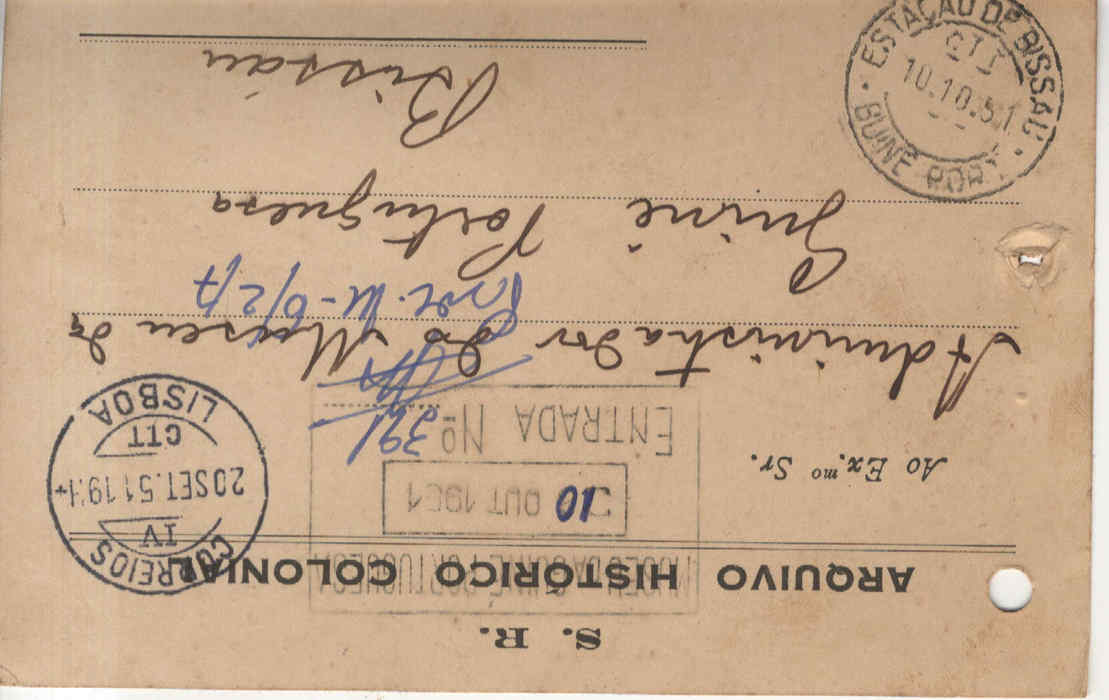 S. R.
ARQUIVO HISTÓRICO COLONIAL
MUSEU DA GUINÉ PORTUGUESA
10 OUT 1951
ENTRADA Nº
391
CORREIOS
IV
20 SET. 51 19
CTT
LISBOA
Ao Ex.mo Sr.
Administrador do Museu da
Guiné Portuguesa
Bissau
ESTAÇÃO DE BISSAU
CTT
10.10.51
GUINÉ PORT.